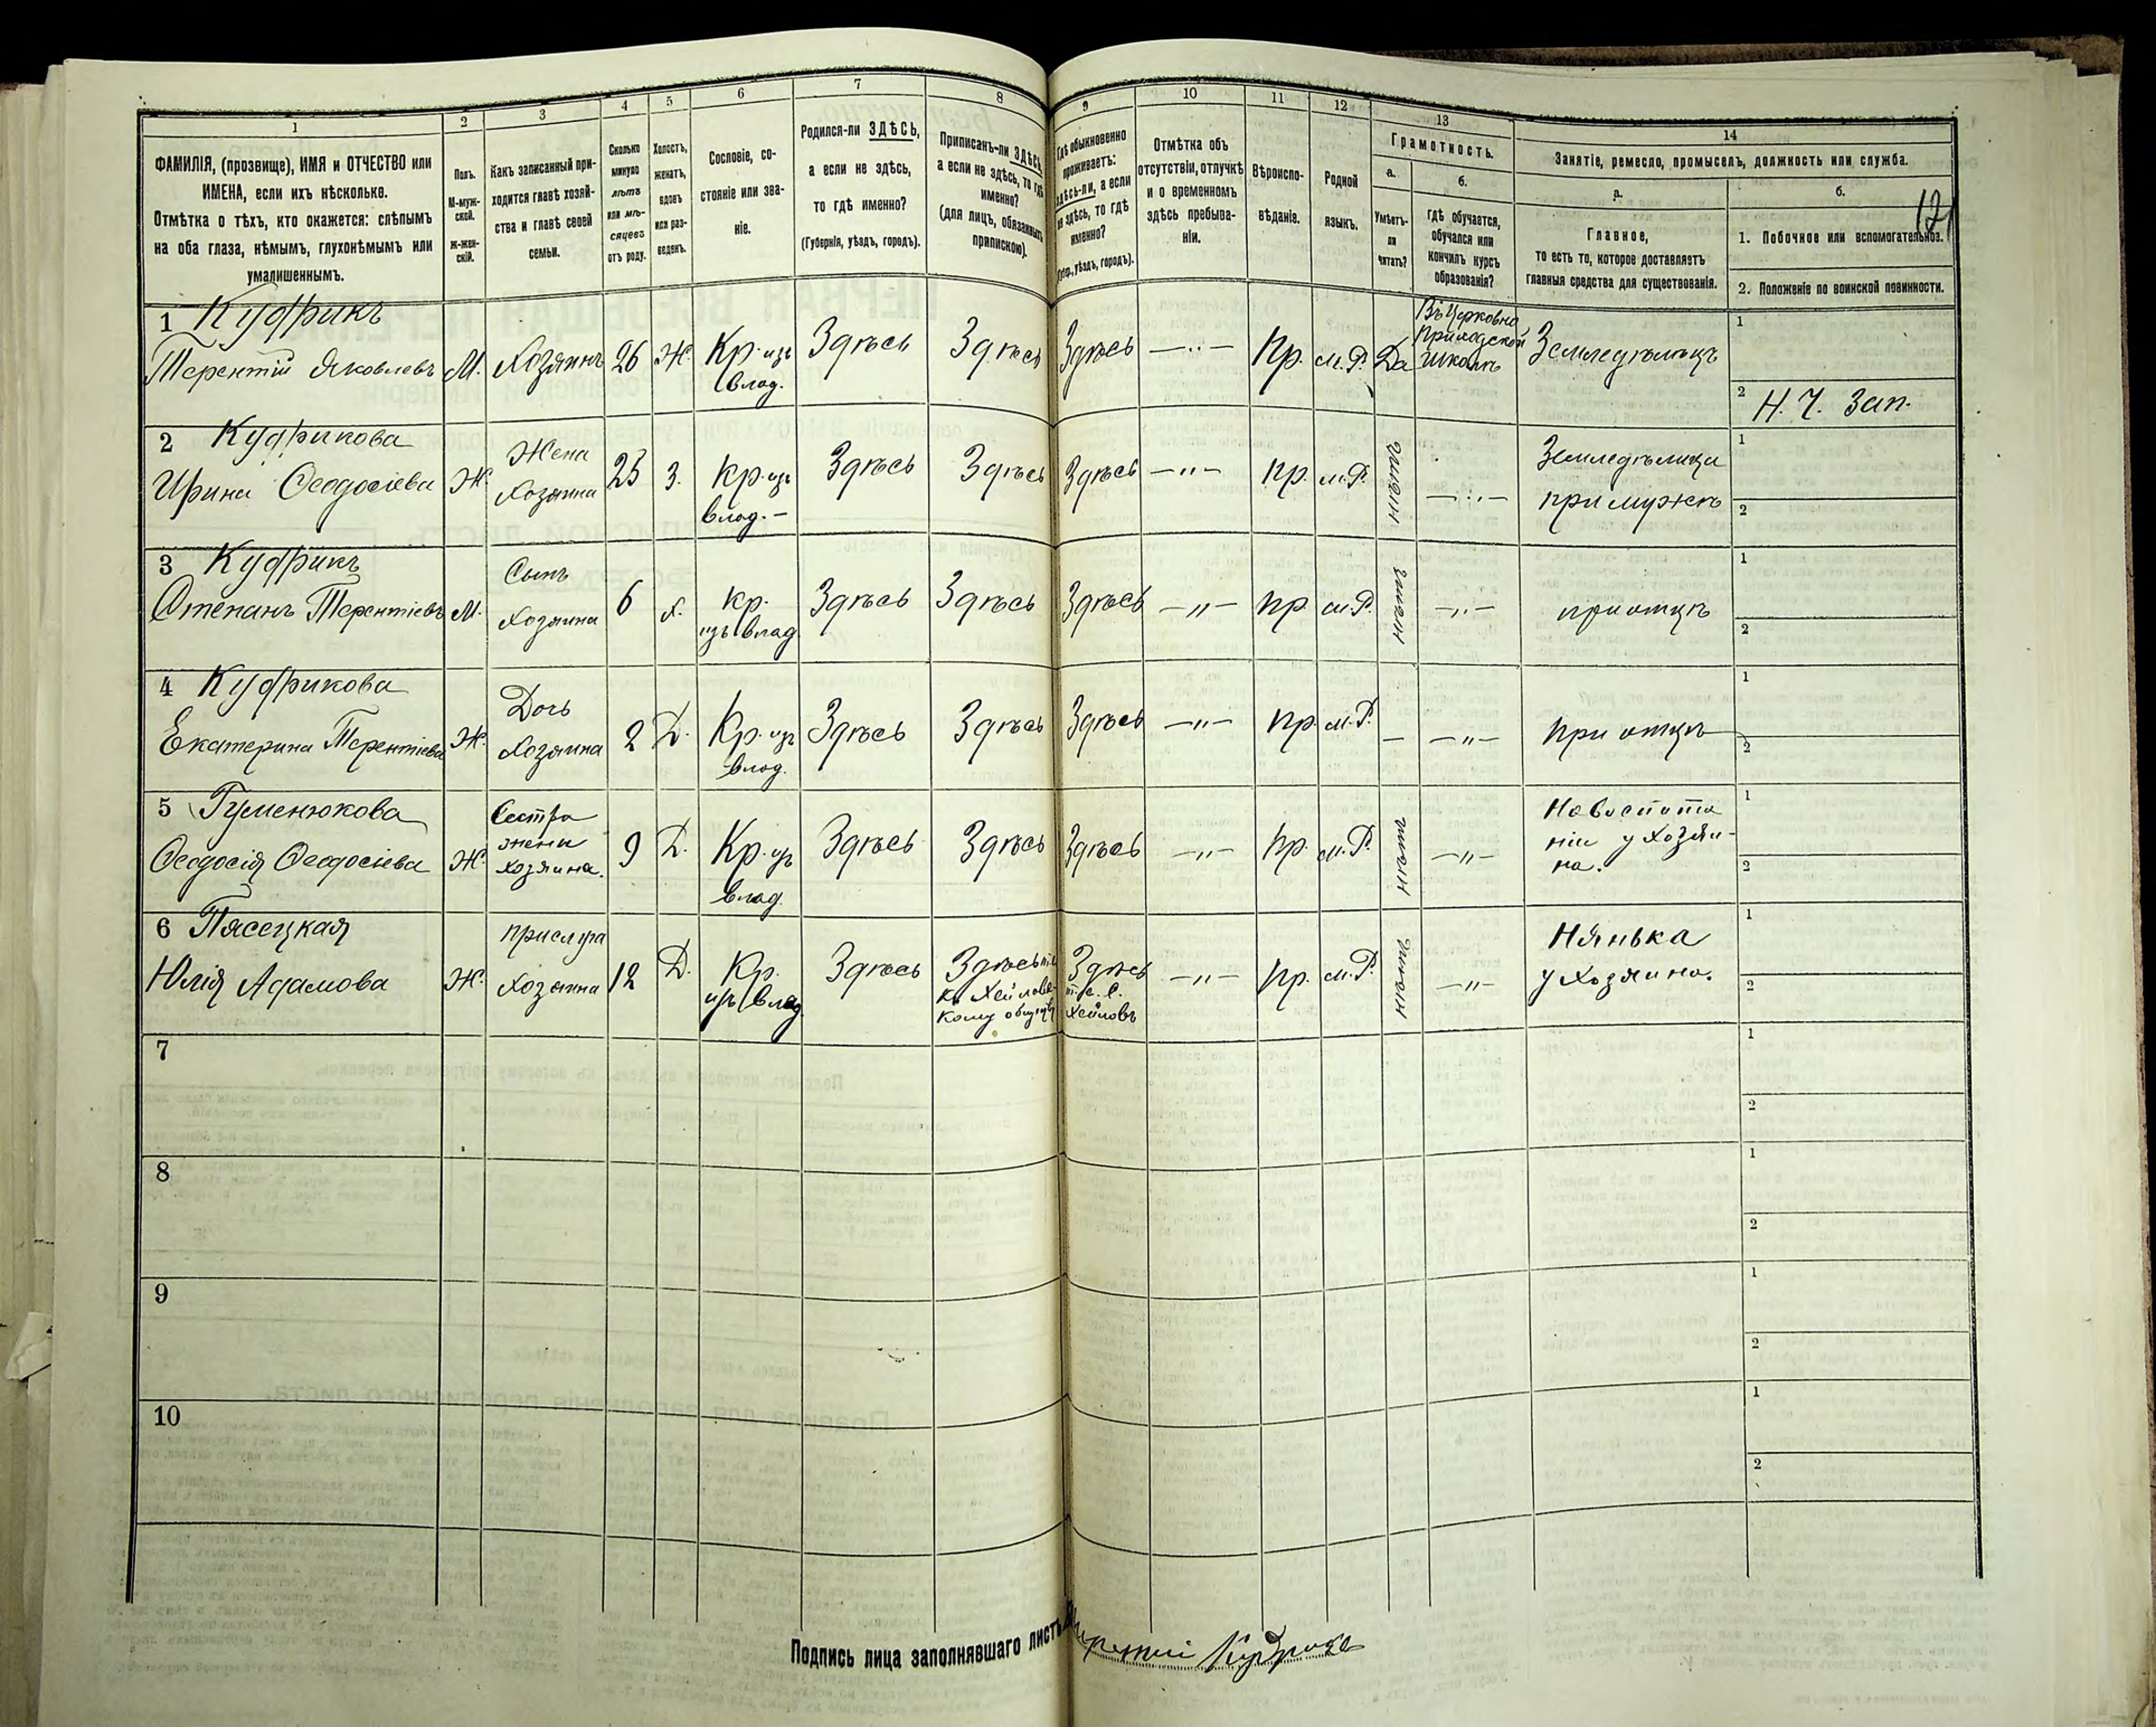 1
ФАМИЛІЯ, (прозвище), ИМЯ и ОТЧЕСТВО или
ИМЕНА, если ихъ нѣсколько.
Отмѣтка о тѣхъ, кто окажется: слѣпымъ
на оба глаза, нѣмымъ, глухонѣмымъ или
умалишеннымъ.
2
Полъ.
М-муж-
ской.
Ж-жен-
скій.
3
Какъ записанный при-
ходится главѣ хозяй-
ства и главѣ своей
семьи.
4
Сколько
минуло
лѣтъ
или мѣ-
сяцевъ
отъ роду.
5
Холостъ,
женатъ,
вдовъ
или раз-
веденъ.
6
Сословіе, со-
стояніе или зва-
ніе.
7
Родился-ли ЗДѢСЬ,
а если не здѣсь,
то гдѣ именно?
(Губернія, уѣздъ, городъ).
8
Приписанъ-ли ЗДѢСЬ,
а если не здѣсь, то гдѣ
именно?
(для лицъ, обязанныхъ
припискою).
9
Гдѣ обыкновенно
проживаетъ:
здѣсь-ли, а если
не здѣсь, то гдѣ
именно?
(Губ., уѣздъ, городъ).
10
Отмѣтка объ
отсутствіи, отлучкѣ
и о временномъ
здѣсь пребыва-
ніи.
11
Вѣроиспо-
вѣданіе.
12
Родной
языкъ.
13
Грамотность.
а.
Умѣетъ-
ли
читать?
б.
гдѣ обучается,
обучался или
кончилъ курсъ
образованія?
14
Занятіе, ремесло, промыселъ, должность или служба.
а.
Главное,
то есть то, которое доставляетъ
главныя средства для существованія.
б.
1. Побочное или вспомогательное.
2. Положеніе по воинской повинности.
1 Кудрикъ
Терентій Яковлевъ М. Хозяинъ 26 Ж. Кр. изъ
влад.
Здѣсь Здѣсь Здѣсь —"— Пр. м.Р. Да
Въ Церковно
Приходской
школѣ
Земледѣлецъ
1
2 Н. Ч. Зап.
2 Кудрикова
Ирина Ѳеодосіева Ж.
Жена
Хозяина
25 З. Кр. изъ
влад. —
Здѣсь Здѣсь Здѣсь —"— Пр. м.Р. нѣтъ —"—
Земледѣлица
при мужѣ
1
2
3 Кудрикъ
Степанъ Терентіевъ М.
Сынъ
Хозяина
6 х. Кр.
изъ влад.
Здѣсь Здѣсь Здѣсь —"— Пр. м.Р. нѣтъ —"— при отцѣ
1
2
4 Кудрикова
Екатерина Терентіева Ж.
Дочь
Хозяина
2 Д. Кр. изъ
влад.
Здѣсь Здѣсь Здѣсь —"— Пр. м.Р. — —"— При отцѣ
1
2
5 Гуменюкова
Ѳеодосія Ѳеодосіева Ж.
Сестра
жены
хозяина.
9 Д. Кр. изъ
влад.
Здѣсь Здѣсь Здѣсь —"— Пр. м.Р. нѣтъ —"—
На воспита
ніи у Хозяи-
на.
1
2
6 Пясецкая
Юлія Адамова Ж.
прислуга
Хозяина
12 Д. Кр.
изъ влад.
Здѣсь Здѣсь
Здѣсь —"— Пр. м.Р. нѣтъ —"—
Нянька
у Хозяина.
1
2
7
1
2
8
1
2
9
1
2
10
1
2
Подпись лица заполнявшаго листъ Терентій Кудрикъ